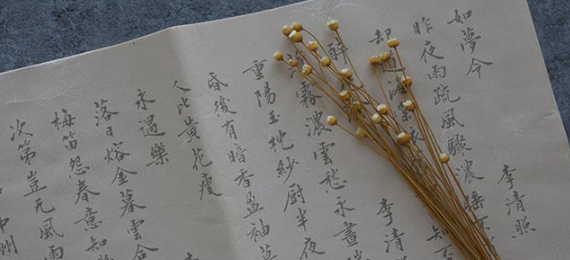 如夢令 李清照
昨夜雨疏風驟濃睡不
却道海棠 知否
醉 李清
薄霧濃雲愁永晝
重陽玉枕紗厨半夜
昏後有暗香盈袖莫
人比黃花瘦
永遇樂
落日熔金暮雲合
梅笛怨春意知
次第豈无風雨
中州